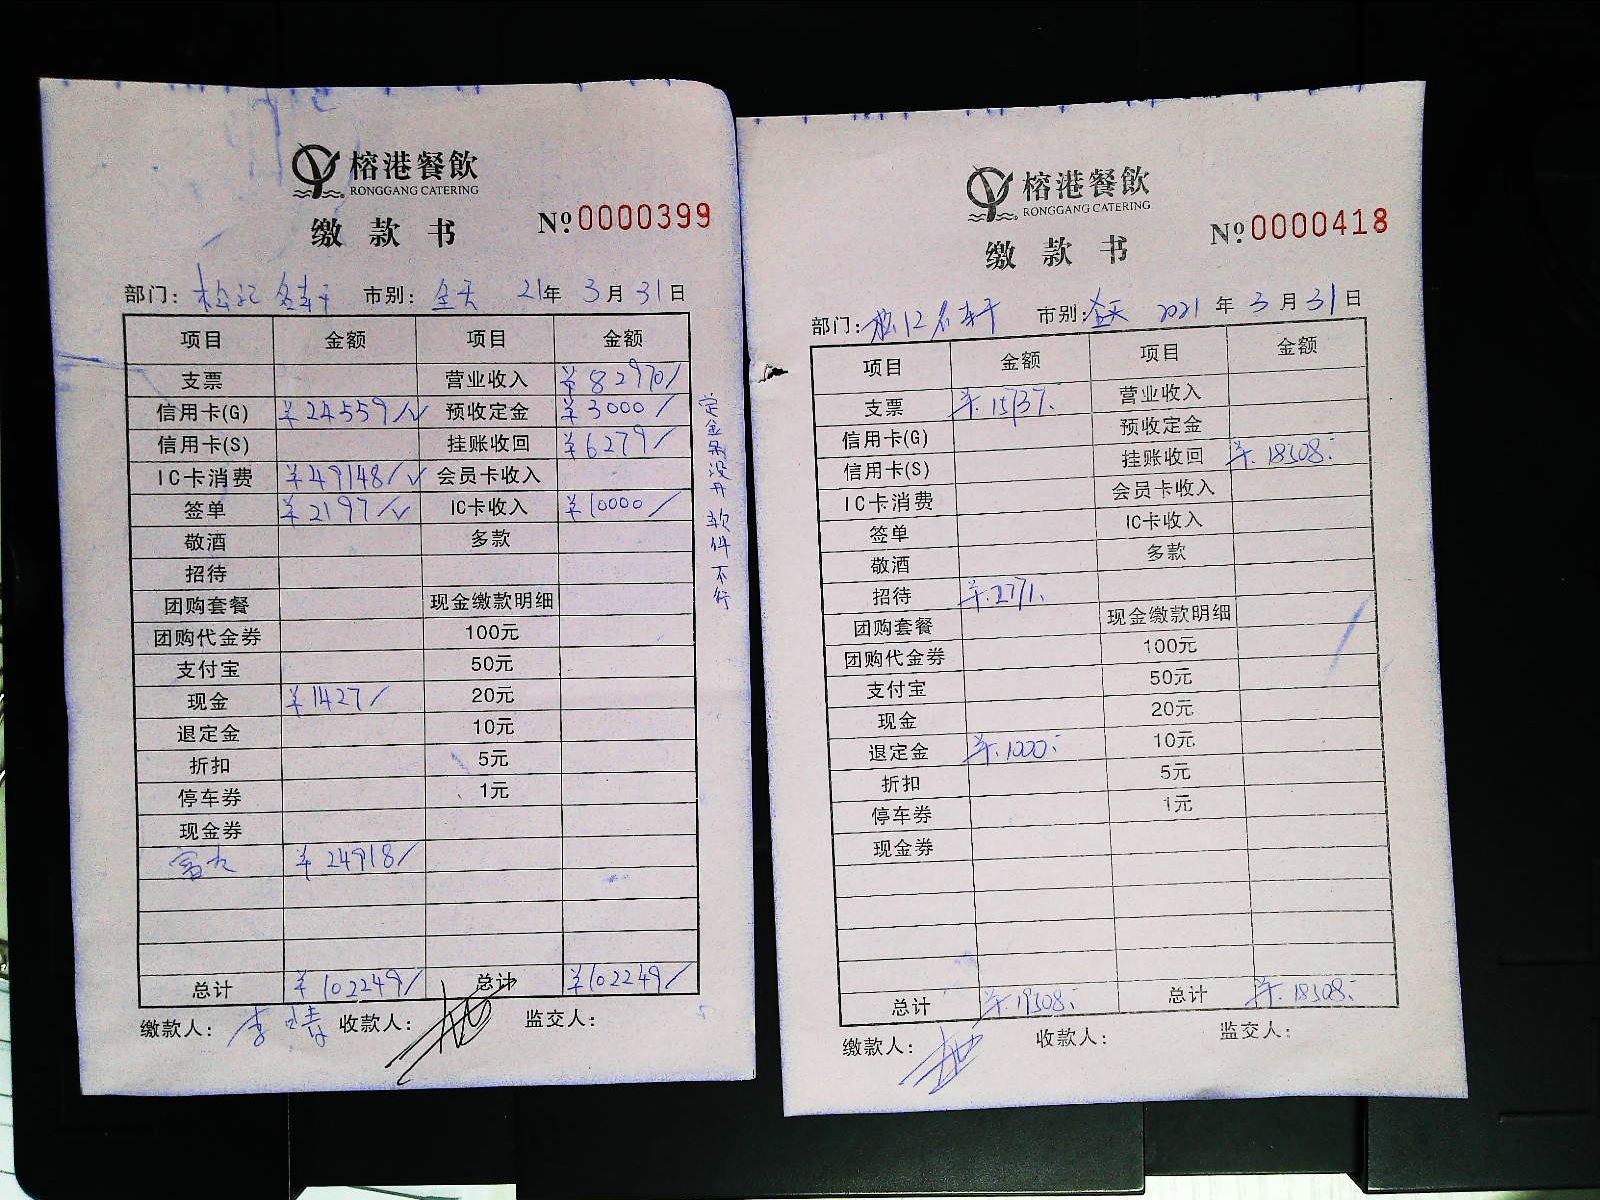 榕港餐飲
RONGGANG CATERING
缴款书 №0000399
部门: 市别: 全天 21年 3月 31日
项目 金额 项目 金额
支票 营业收入 ¥82970/
信用卡(G) ¥24559/✓ 预收定金 ¥3000/
信用卡(S) 挂账收回 ¥6279/
IC卡消费 ¥49148/✓ 会员卡收入
签单 ¥2197/✓ IC卡收入 ¥10000/
敬酒 多款
招待
团购套餐 现金缴款明细
团购代金券 100元
支付宝 50元
现金 ¥1427/ 20元
退定金 10元
折扣 5元
停车券 1元
现金券
¥24918/
总计 ¥102249/ 总计 ¥102249/
缴款人: 李 收款人: 监交人:
定金 没开 软件不行
榕港餐飲
RONGGANG CATERING
缴款书 №0000418
部门: 市别: 全天 2021年 3月 31日
项目 金额 项目 金额
支票 ¥15137. 营业收入
信用卡(G) 预收定金
信用卡(S) 挂账收回 ¥18508.
IC卡消费 会员卡收入
签单 IC卡收入
敬酒 多款
招待 ¥2371.
团购套餐 现金缴款明细
团购代金券 100元
支付宝 50元
现金 20元
退定金 ¥1000. 10元
折扣 5元
停车券 1元
现金券
总计 总计 ¥18508.
缴款人: 收款人: 监交人: